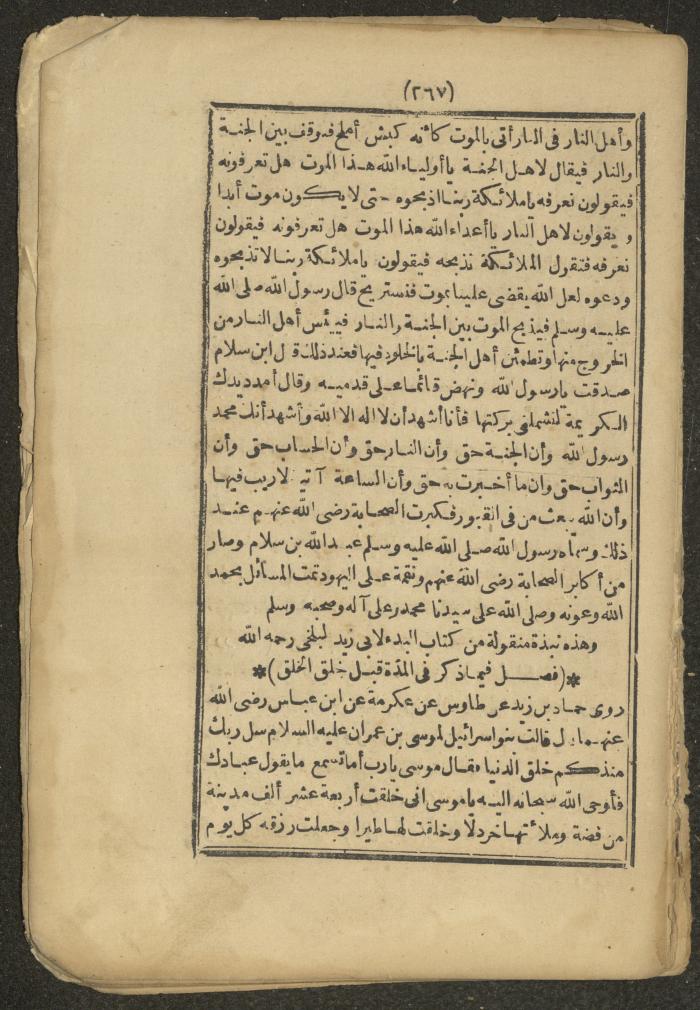 (٢٦٧)
وأهل النار فى النار أتى بالموت كأنه كبش أملح فيوقف بين الجنة
والنار فيقال لاهل الجنة ياأولياء الله هذا الموت هل تعرفونه
فيقولون نعرفه ياملائكة ربنا اذبحوه حتى لا يكون موت أبدا
ويقولون لاهل النار ياأعداء الله هذا الموت هل تعرفونه فيقولون
نعرفه فتقول الملائكة نذبحه فيقولون ياملائكة ربنا لا تذبحوه
ودعوه لعل الله يقضى علينا بموت فنستريح قال رسول الله صلى الله
عليه وسلم فيذبح الموت بين الجنة والنار فييئس أهل النار من
الخروج منها وتطمئن أهل الجنة بالخلود فيها فعند ذلك قال ابن سلام
صدقت يارسول الله ونهض قائما على قدميه وقال أمدد يدك
الكريمة لتشملنى بركتها فأنا أشهد أن لا اله الا الله وأشهد أنك محمد
رسول الله وأن الجنة حق وأن النار حق وأن الحساب حق وأن
الثواب حق وان ما أخبرت به حق وأن الساعة آتية لاريب فيها
وأن الله يبعث من فى القبور فكبرت الصحابة رضى الله عنهم عند
ذلك وسماه رسول الله صلى الله عليه وسلم عبد الله بن سلام وصار
من أكابر الصحابة رضى الله عنهم ونقمة على اليهود تمت المسائل بحمد
الله وعونه وصلى الله على سيدنا محمد وعلى آله وصحبه وسلم
وهذه نبذة منقولة من كتاب البدء لابى زيد البلخى رحمه الله
*(فصل فيما ذكر فى المدّة قبل خلق الخلق)*
روى حماد بن زيد عن طاوس عن عكرمة عن ابن عباس رضى الله
عنهما قال قالت بنو اسرائيل لموسى بن عمران عليه السلام سل ربك
منذ كم خلق الدنيا فقال موسى يارب أما تسمع ما يقول عبادك
فأوحى الله سبحانه اليه ياموسى انى خلقت أربعة عشر ألف مدينة
من فضة وملأتها خردلا وخلقت لها طيرا وجعلت رزقه كل يوم